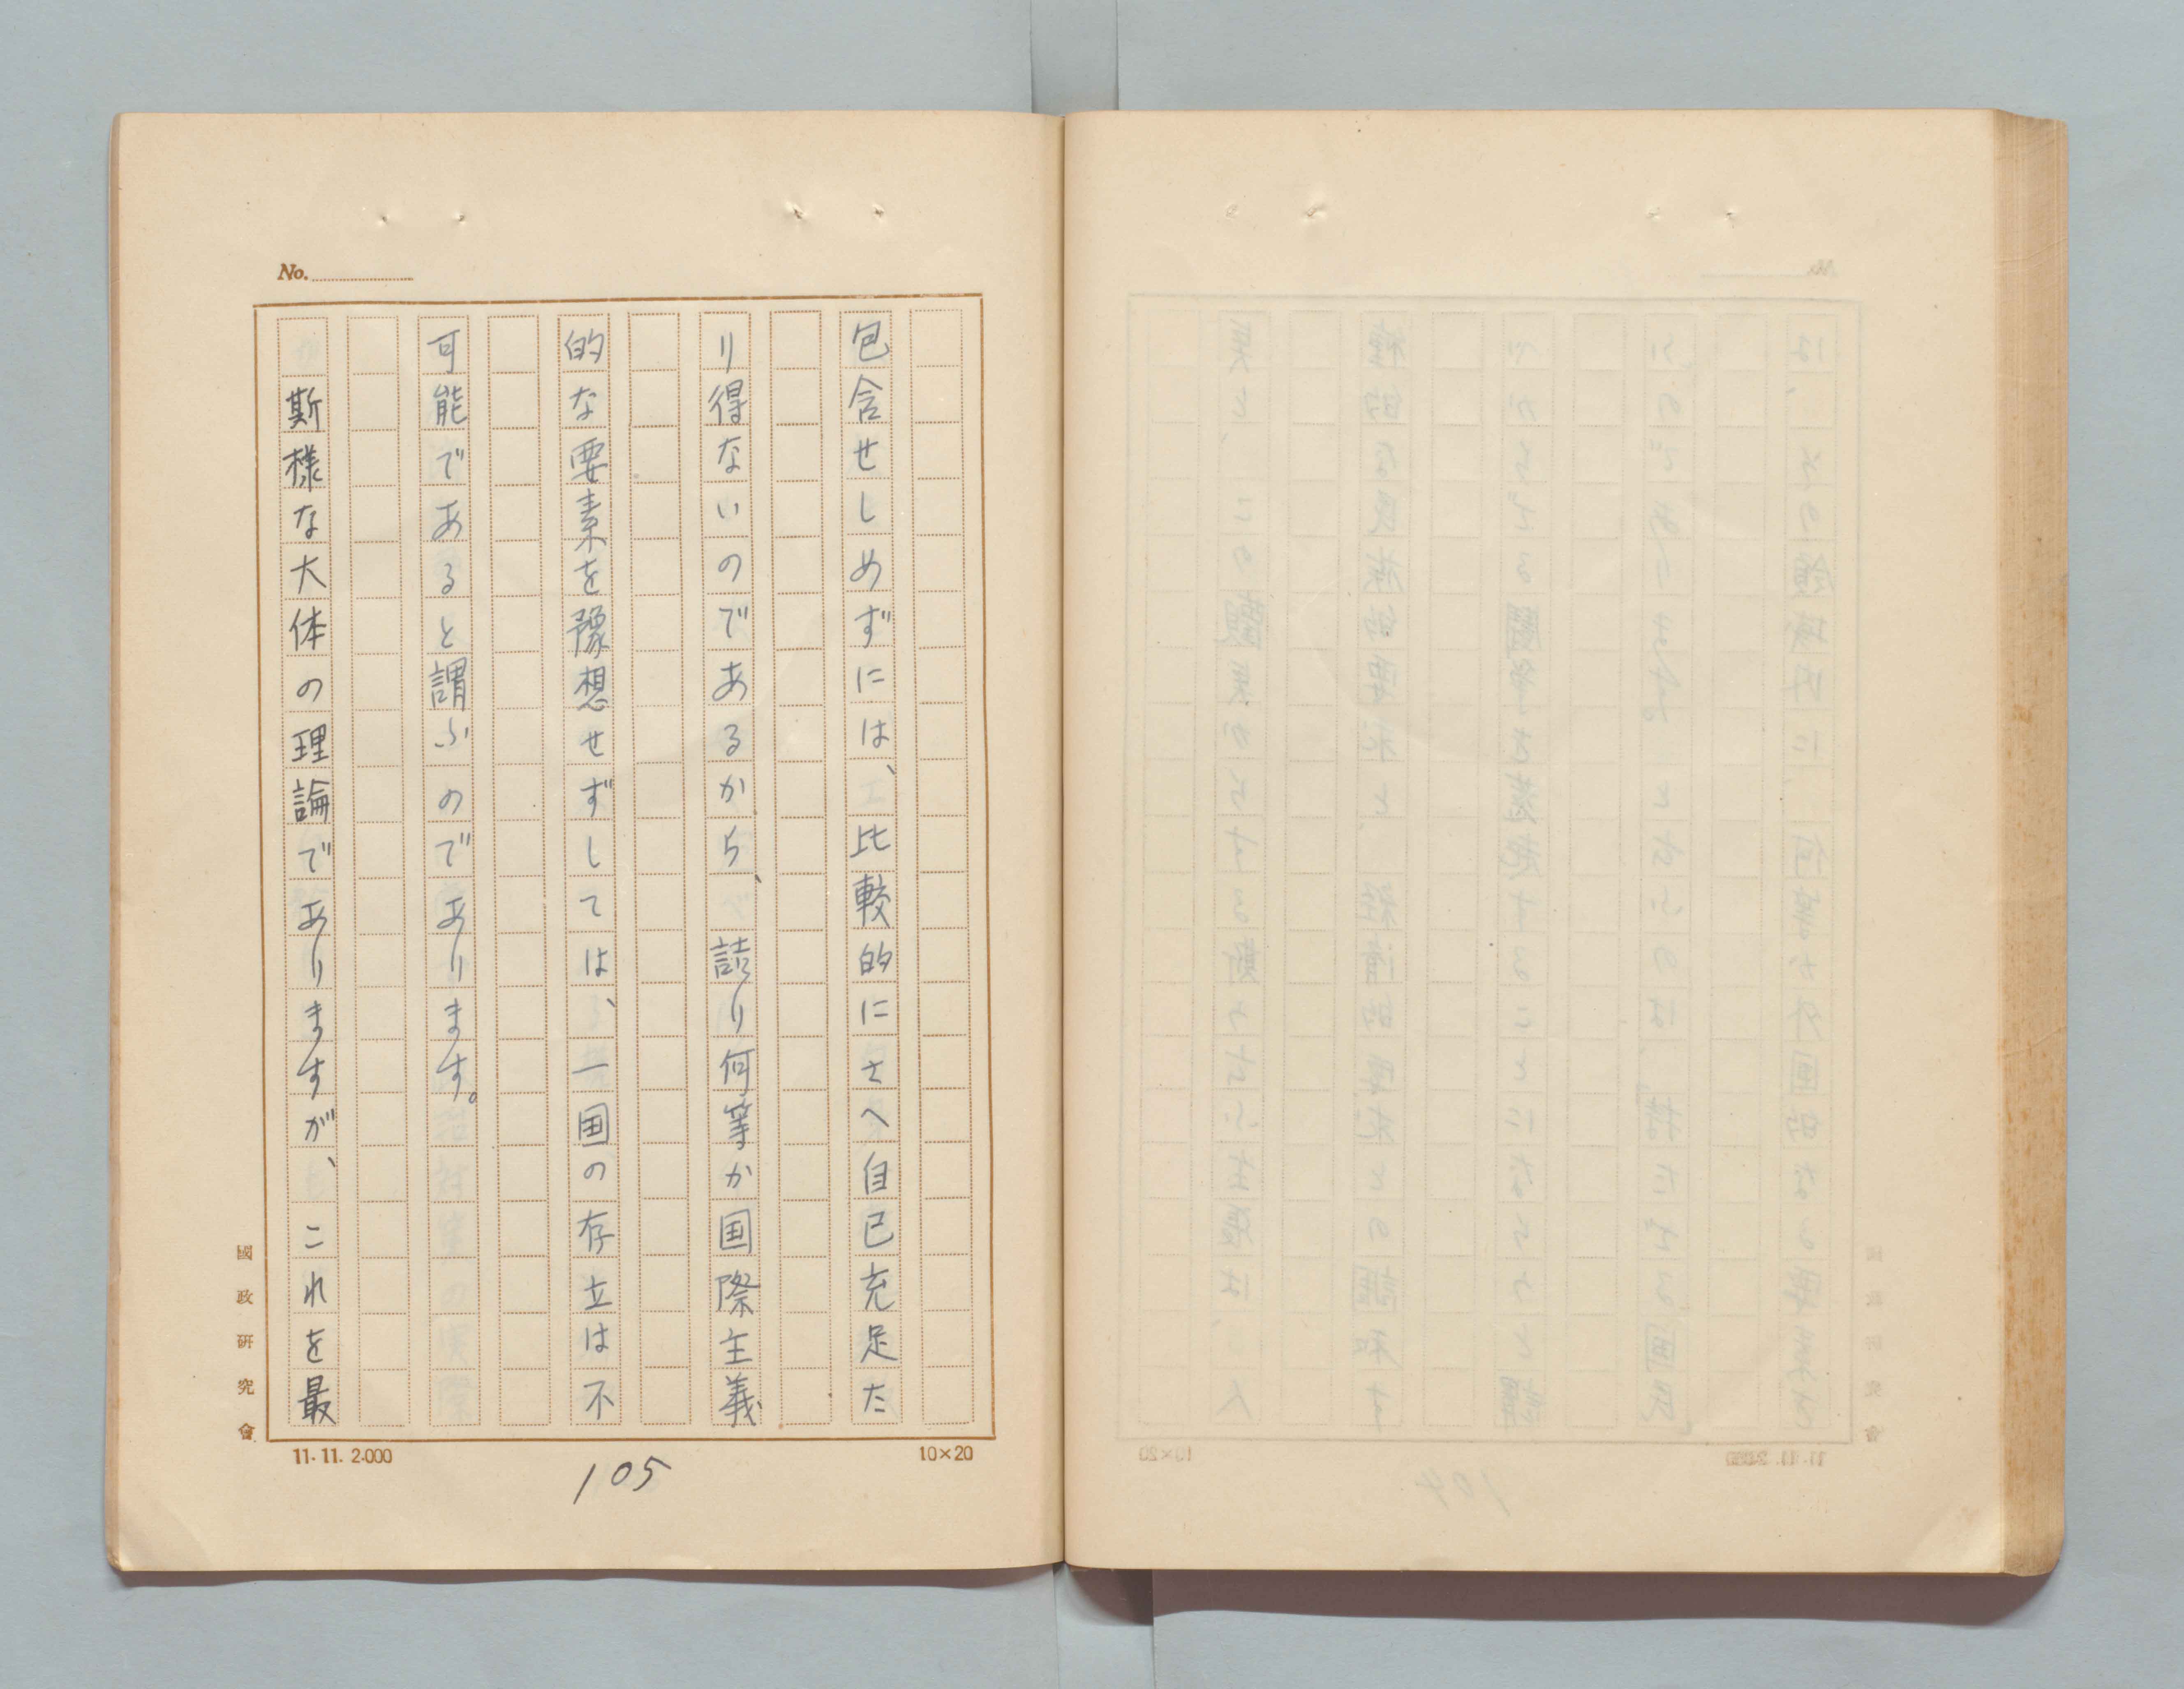 No.
包含せしめずには、比較的にさへ自己充足た
り得ないのであるから、詰り何等か国際主義
的な要素を豫想せずしては、一国の存立は不
可能であると謂ふのであります。
斯様な大体の理論でありますが、これを最
國政研究會
11.11.2.000
105
10×20